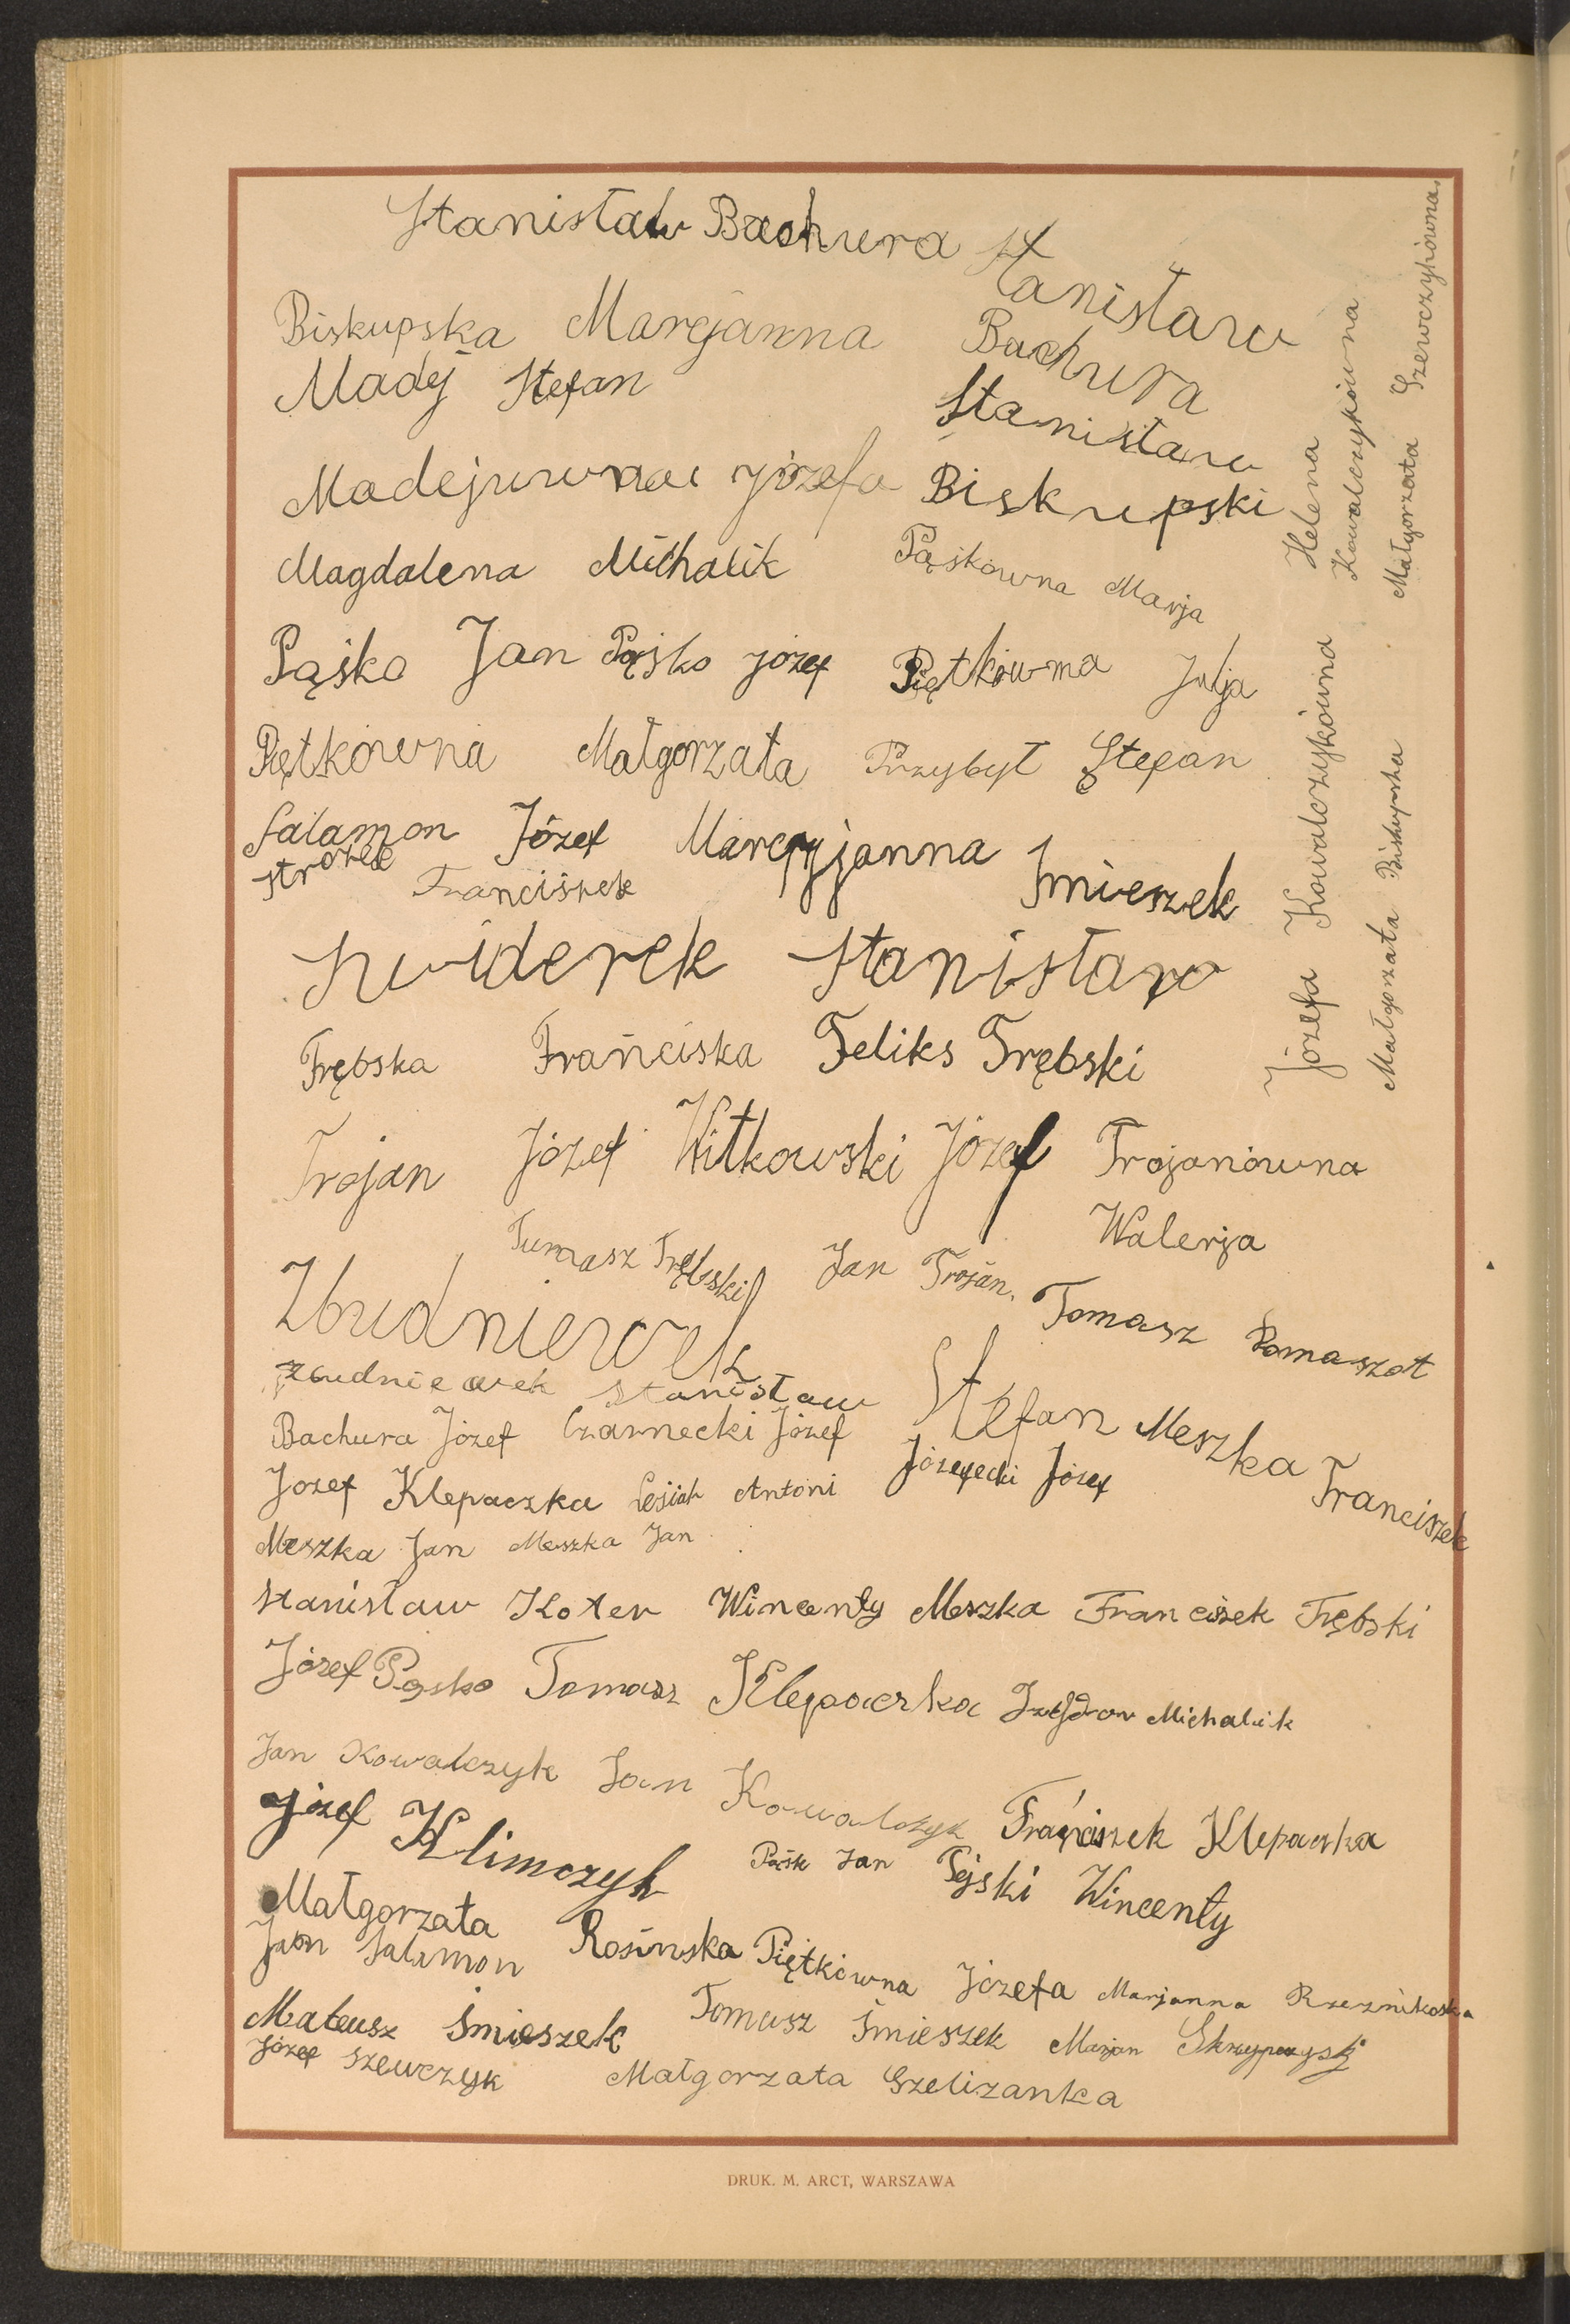 Stanisław Bachura
Stanisław
Bachura
Biskupska Marejanna
Madej Stefan
Stanisław
Biskupski
Madejuwna Józefa
Magdalena Michalik
Paśkówna Marja
Pąśko Jan Pąśko Józef Piętkówna Julja
Piętkówna Małgorzata Przybył Stefan
Salamon Józef Marcyjanna Smieszek
Strózek Franciszek
Swiderek Stanisław
Trębska Franciska Feliks Trębski
Trojan Józef Witkowski Józef Trojanówna
Walerja
Tumasz Trębski Jan Trojan.
Zbudniewek
Tomasz Romaszot
Zbudniewek Stanisław
Stefan Meszka
Bachura Józef Czarnecki Józef
Józefecki Józef
Franciszek
Jozef Klepaczka Lesiak Antoni
Meszka Jan Meszka Jan
Stanisław Koter Wincenty Meszka Franciszek Trębski
Józef Pąsko Tomasz Klepaczka Michalik
Jan Kowalczyk Jan Kowalczyk Franciszek Klepaczka
Józef Klimczyk Paśk Jan Pejski Wincenty
Małgorzata Rosinska Piętkówna Józefa Marjanna Rzeznikoska
Jan Salamon
Mateusz Śmieszek Tomasz Śmieszek Marjan
Józef Szewczyk Małgorzata Szelizanka
Helena
Kowalczykówna
Małgorzata Szewczykówna
Józefa Kowalczykówna
Małgorzata Biskupska
DRUK. M. ARCT, WARSZAWA